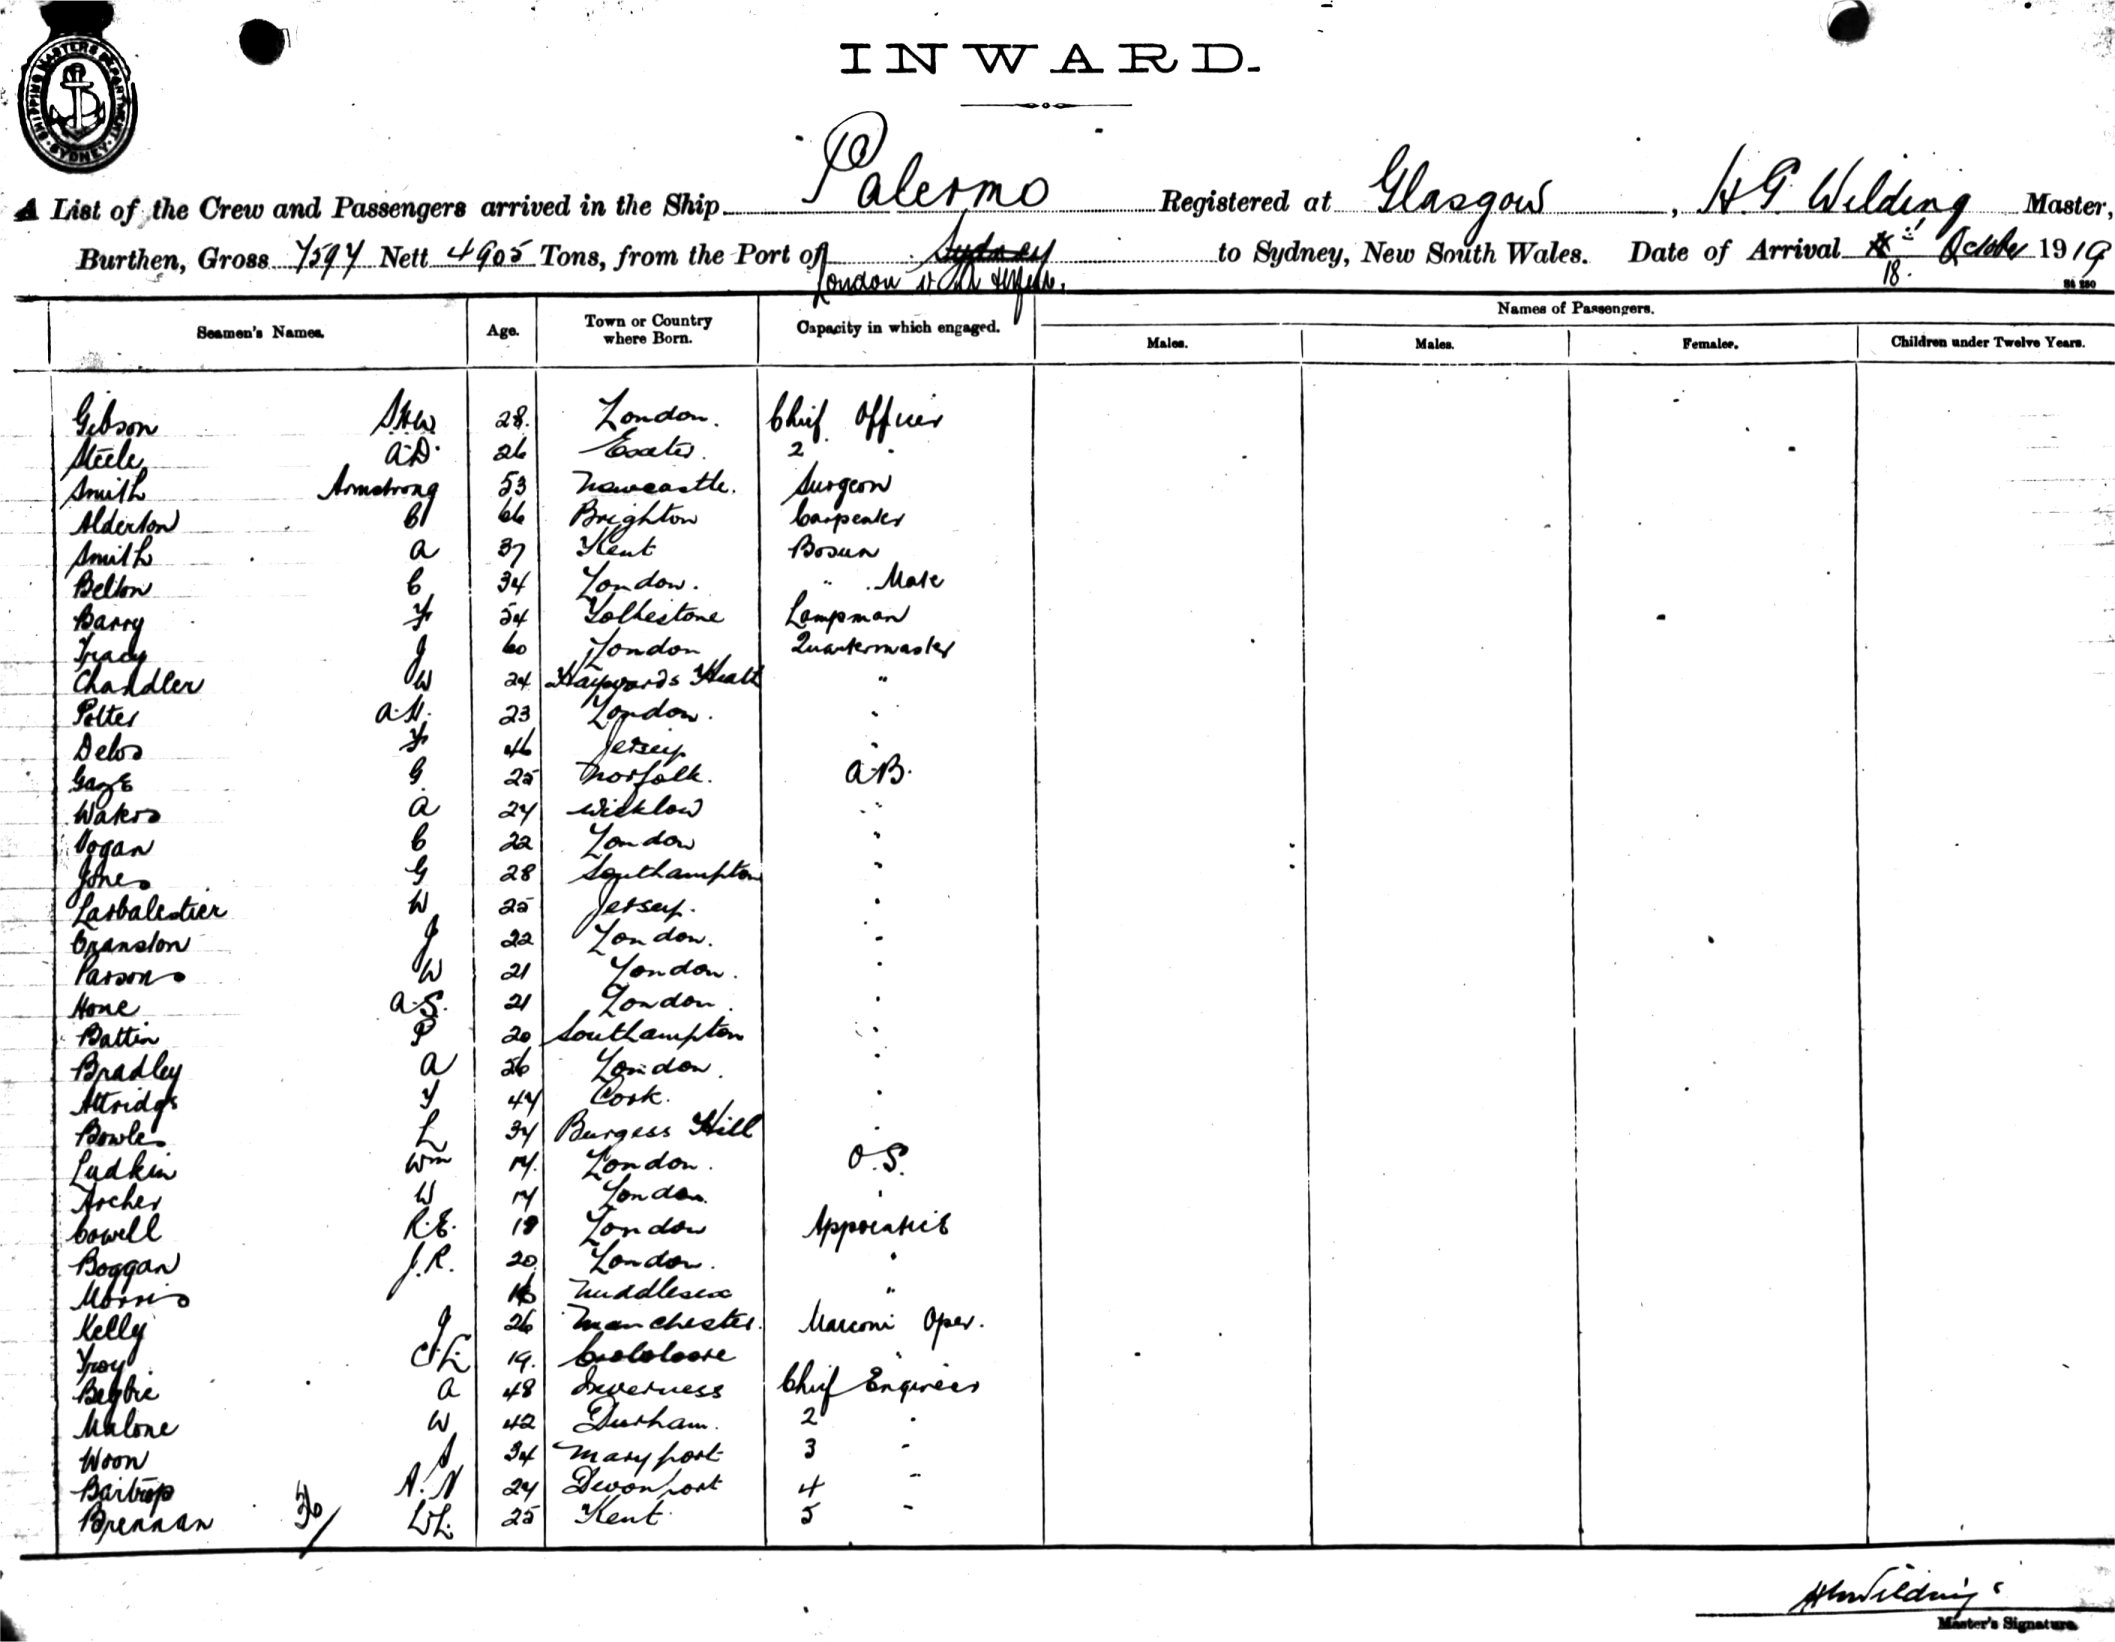 SHIPPING MASTERS DEPARTMENT
SYDNEY
INWARD.
Palermo
A List of the Crew and Passengers arrived in the Ship Palermo Registered at Glasgow, H.G. Wilding Master,
Burthen, Gross 7597 Nett 4905 Tons, from the Port of Sydney to Sydney, New South Wales. Date of Arrival October 1919
London 18.
Names of Passengers.
Seamen's Names. Age. Town or Country where Born. Capacity in which engaged. Males. Males. Females. Children under Twelve Years.
Gibson 28. London. Chief Officer
Steele A.D. 26 Exeter. 2 "
Smith Armstrong 53 Newcastle. Surgeon
Alderton C 66 Brighton Carpenter
Smith A 37 Kent Bosun
Belton C 34 London. " Mate
Barry F 54 Folkestone Lampman
Tracy J 60 London Quartermaster
Chandler W 24 Haywards Heath "
Potter A.H. 23 London. "
Delos F 46 Jersey "
Gaze G. 25 Norfolk. A.B.
Waters A 27 Wicklow "
Vogan C 22 London "
Jones G 28 Southampton "
Larbalestier W 25 Jersey. "
Cranston J 22 London. "
Parsons W 21 London. "
Hone A.S. 21 London. "
Battin P 20 Southampton "
Bradley A 26 London. "
Attridge T 47 Cork. "
Bowles L 37 Burgess Hill "
Ludkin Wm 17. London. O.S.
Archer W 17 London. "
Cowell R.E. 18 London Apprentice
Boggan J.R. 20 London. "
Morris 16 Middlesex "
Kelly J 26 Manchester. Marconi Oper.
Troy 19. "
Begbie A 48 Inverness Chief Engineer
Malone W 42 Durham. 2 "
Woon 34 Maryport 3 "
Bartrop A.N 27 Devonport 4 "
Brennan 25 Kent 5 "
Master's Signature.